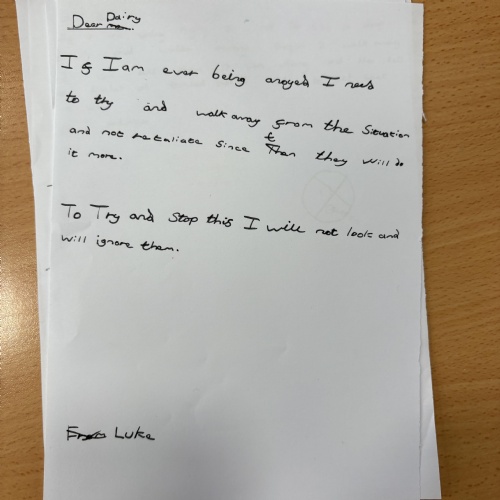 Dear Dairy
If I am ever being anoyed I need
to try and walk away from the Situation
and not retaliate Since then they will do
it more.
To Try and Stop this I will not look and
will ignore them.
Luke